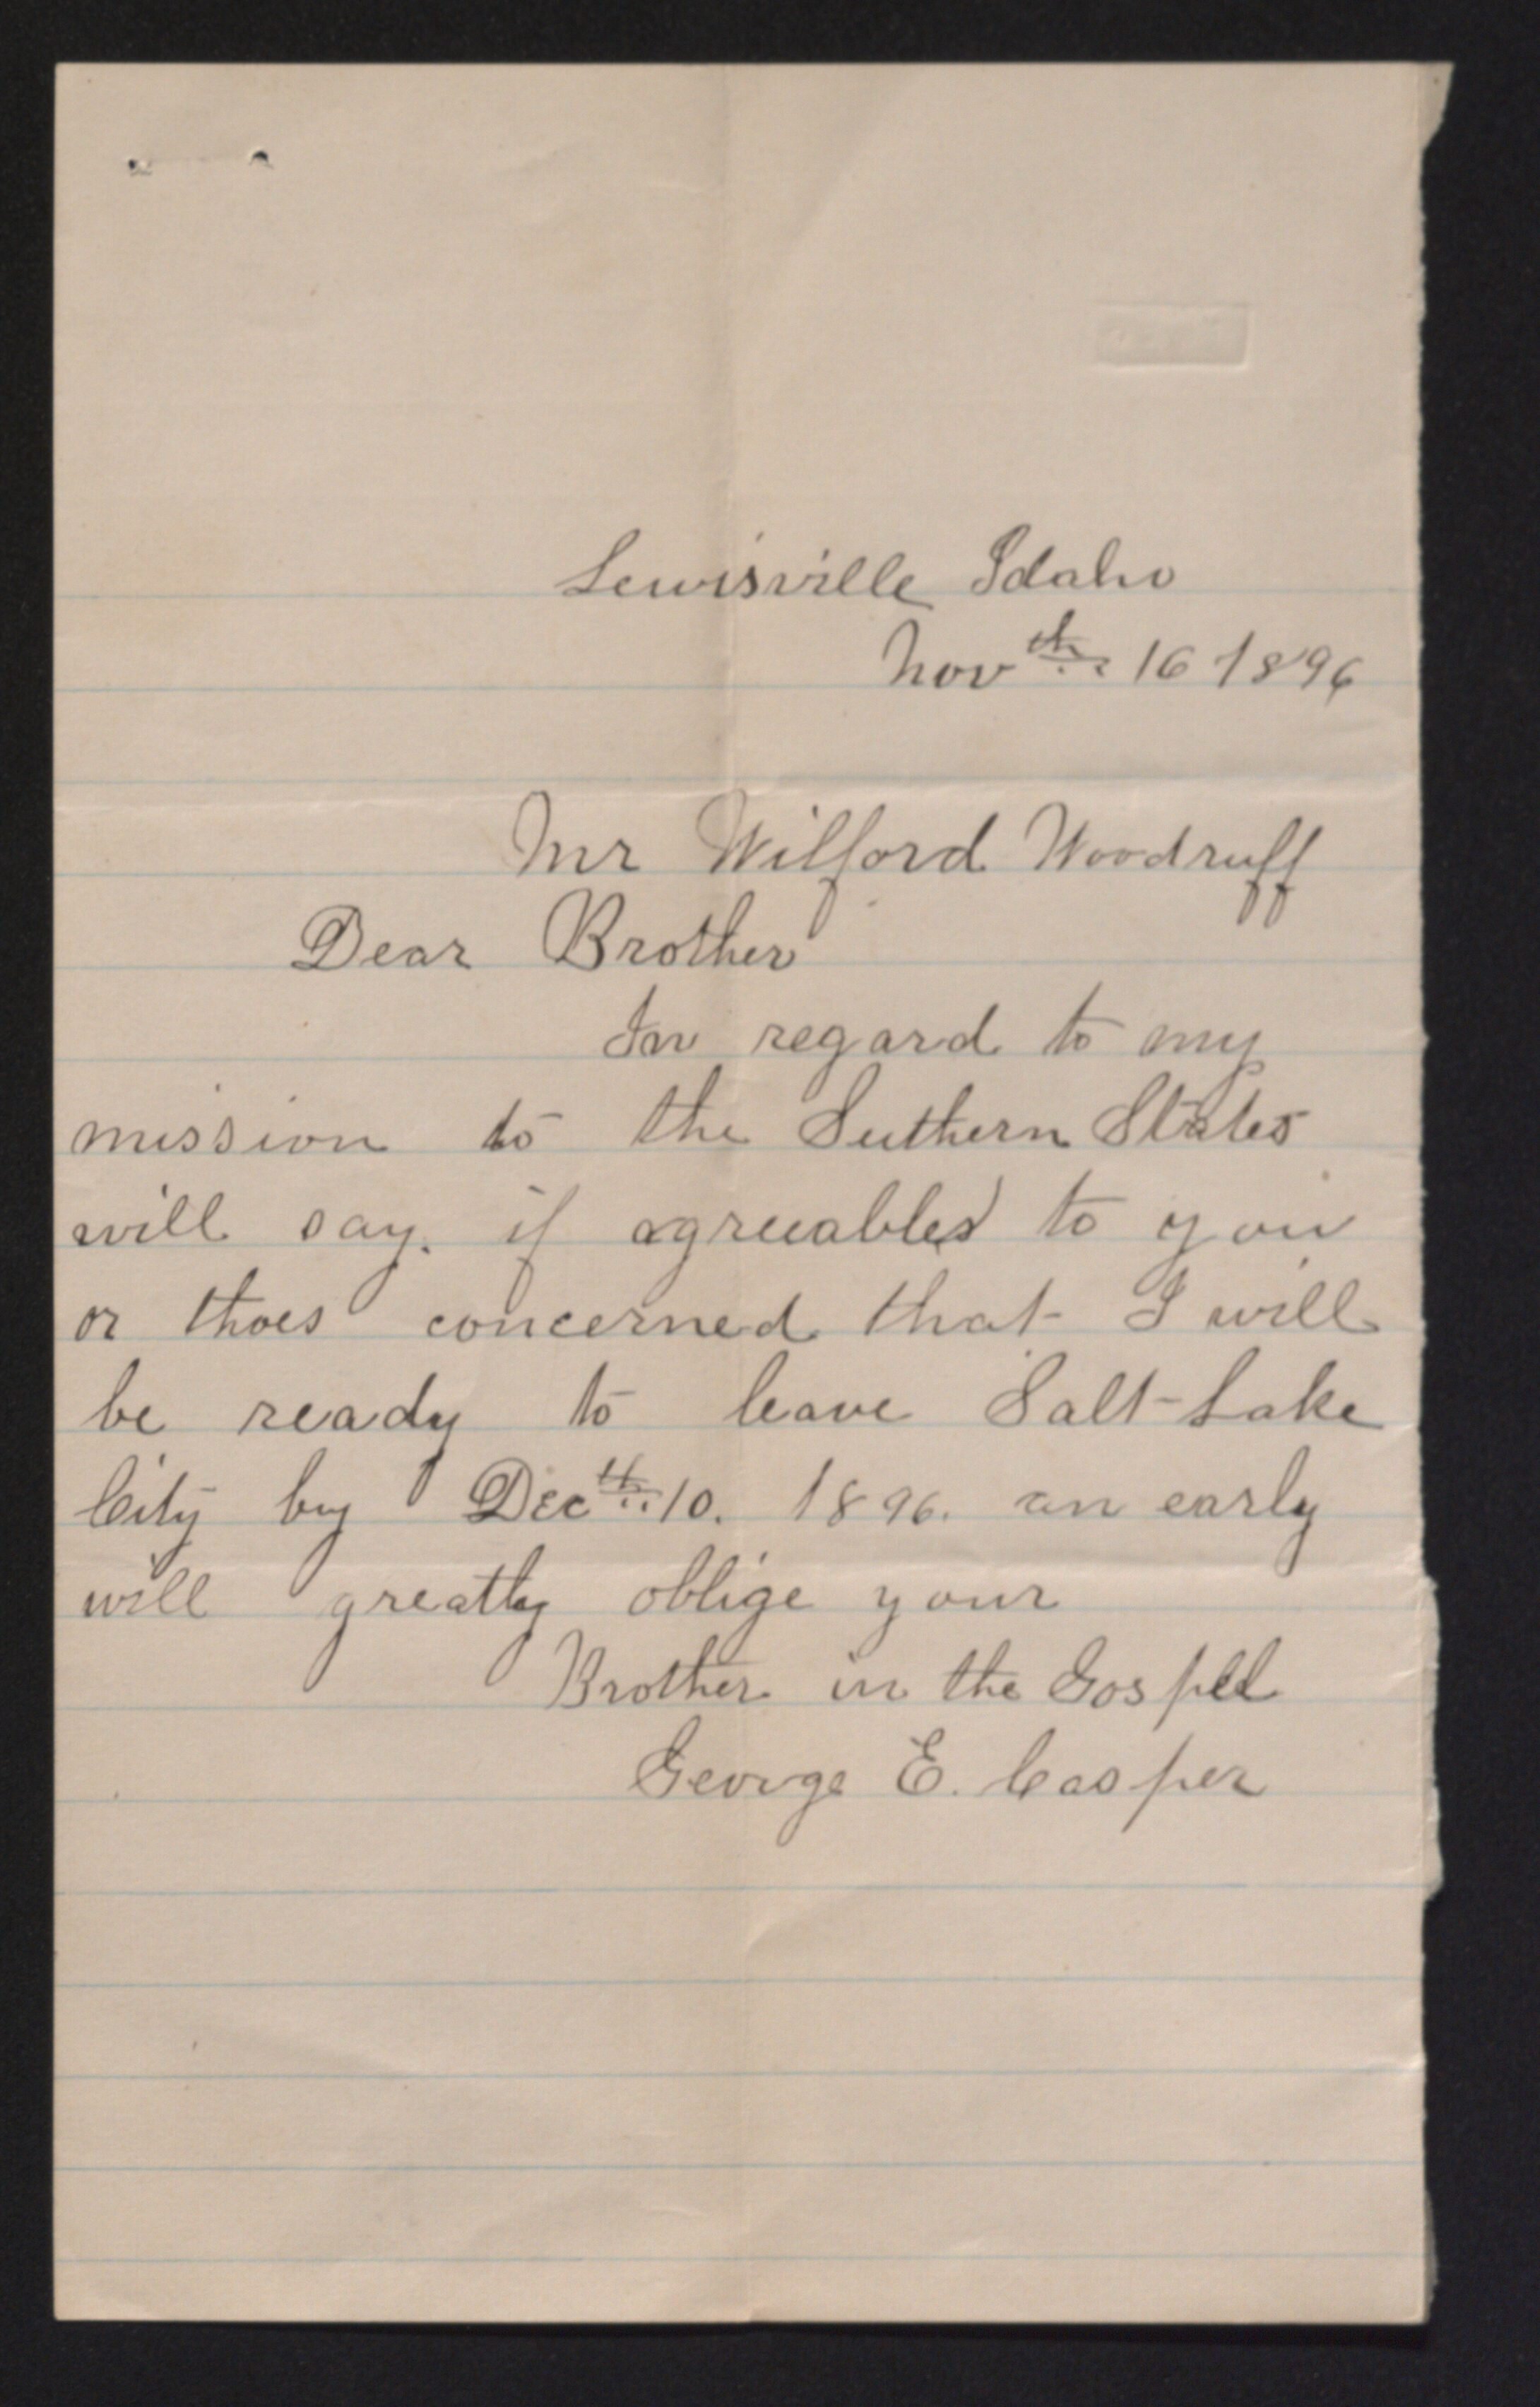 Lewisville Idaho
Nov th 16 1896
Mr Wilford Woodruff
Dear Brother
In regard to my
mission to the Suthern States
will say. if agreeables to you
or thoes concerned that I will
be ready to leave Salt-Lake
City by Dec th 10. 1896. an early
will greatly oblige your
Brother in the Gospel
George E. Casper